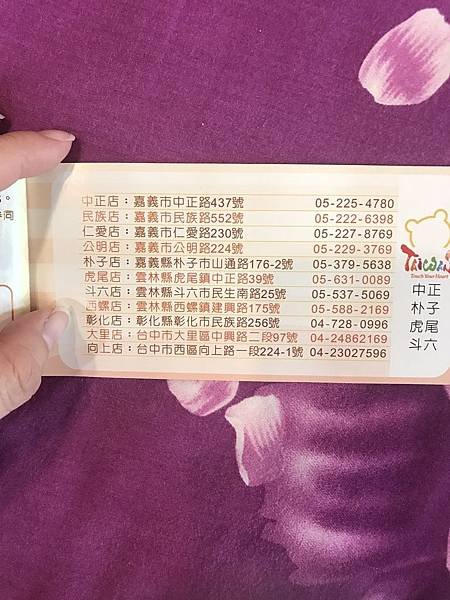 中正店：嘉義市中正路437號 05-225-4780
民族店：嘉義市民族路552號 05-222-6398
仁愛店：嘉義市仁愛路230號 05-227-8769
公明店：嘉義市公明路224號 05-229-3769
朴子店：嘉義縣朴子市山通路176-2號 05-379-5638
虎尾店：雲林縣虎尾鎮中正路39號 05-631-0089
斗六店：雲林縣斗六市民生南路25號 05-537-5069
西螺店：雲林縣西螺鎮建興路175號 05-588-2169
彰化店：彰化縣彰化市民族路256號 04-728-0996
大里店：台中市大里區中興路二段97號 04-24862169
向上店：台中市西區向上路一段224-1號 04-23027596
TAIWAN
Touch Your Heart
中正
朴子
虎尾
斗六